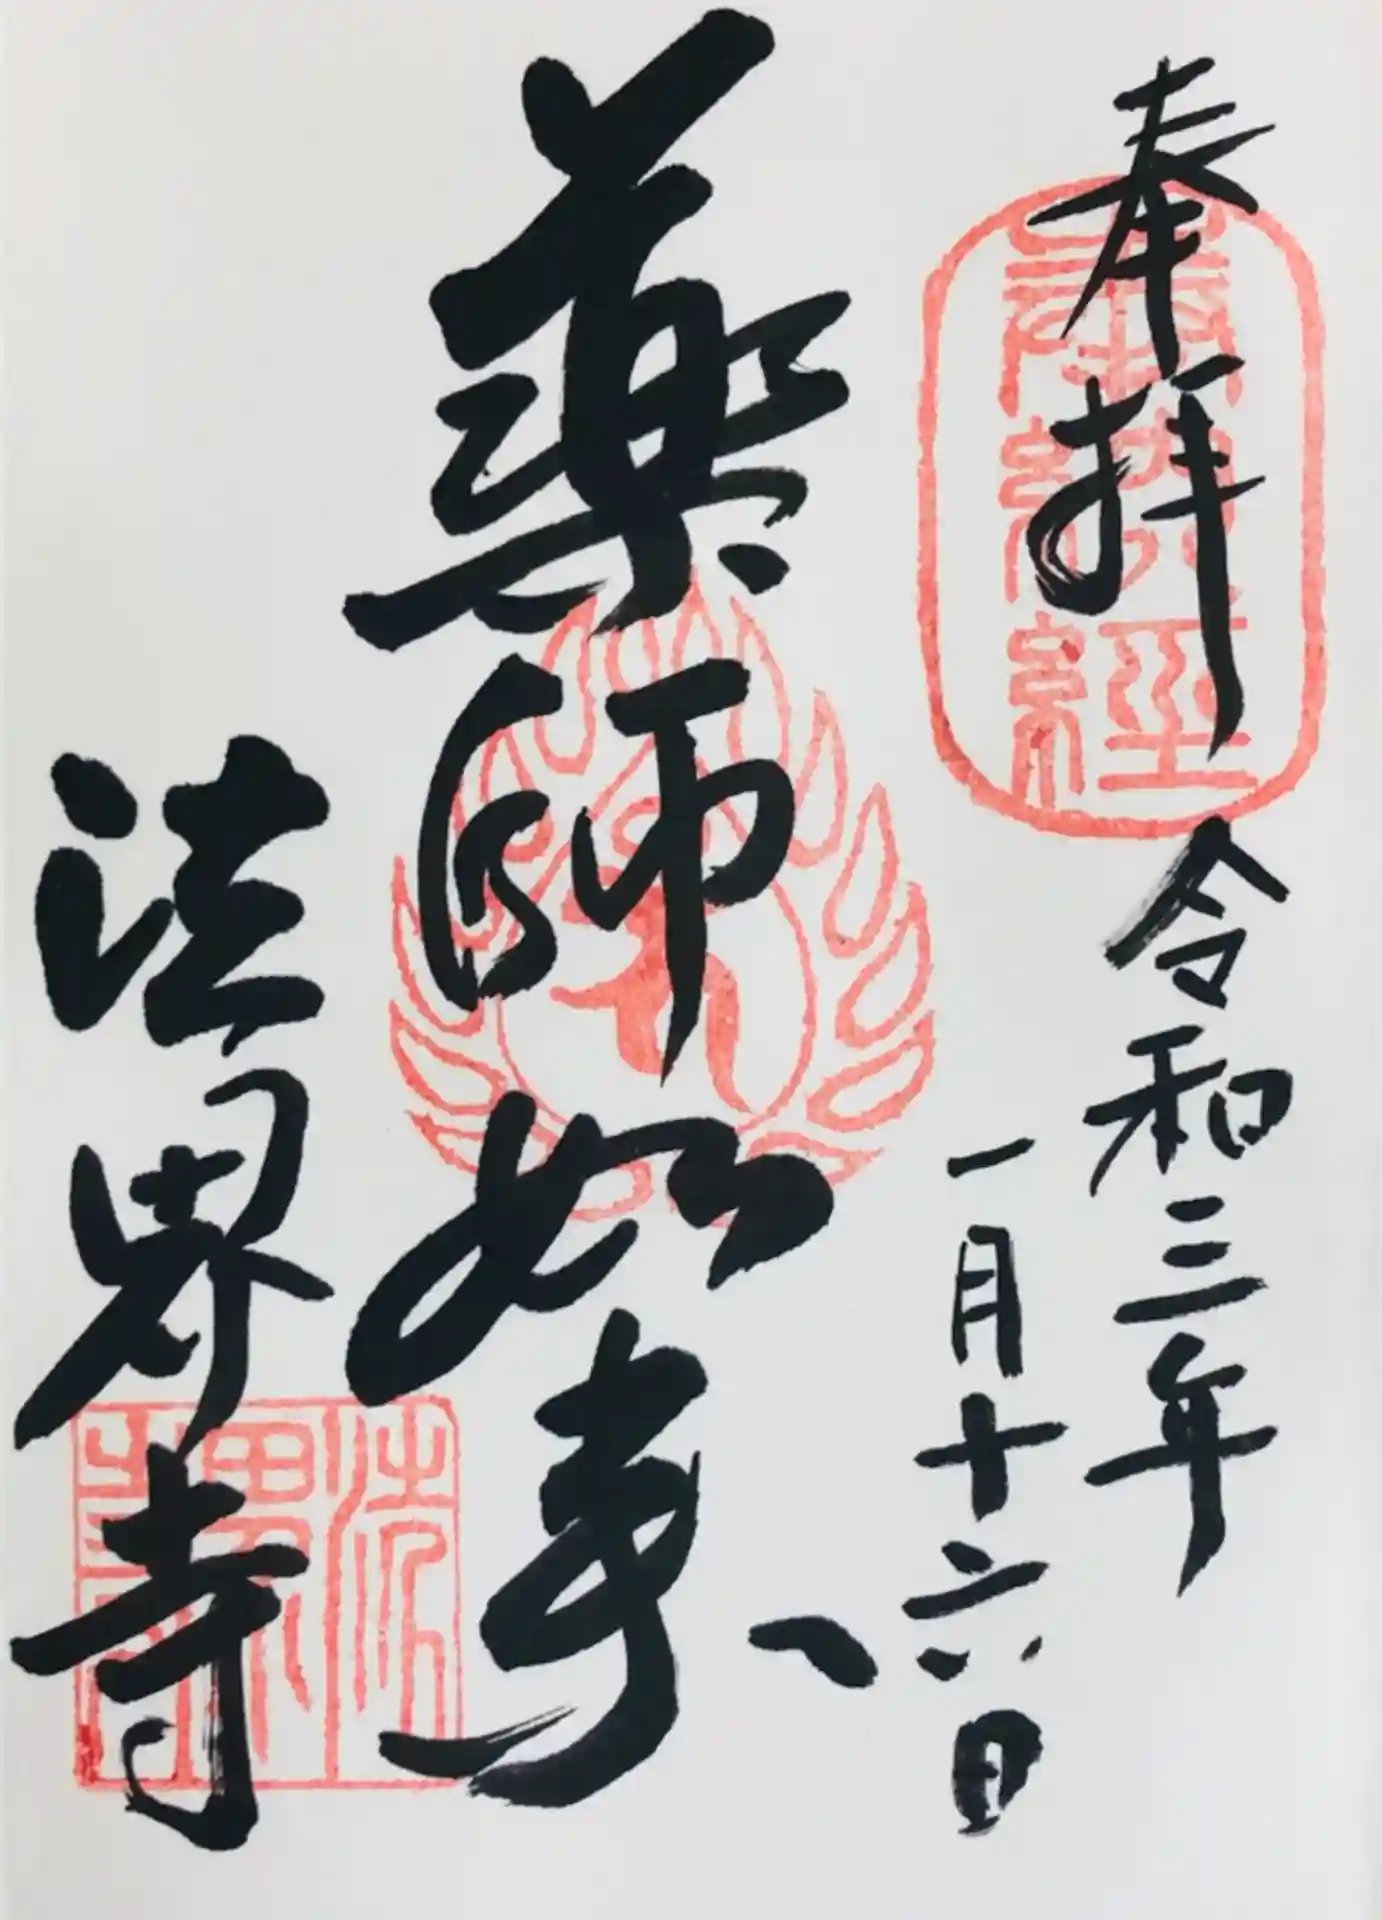 奉拝
奉納経
令和三年
一月十六日
薬師如来
法界寺
法界寺